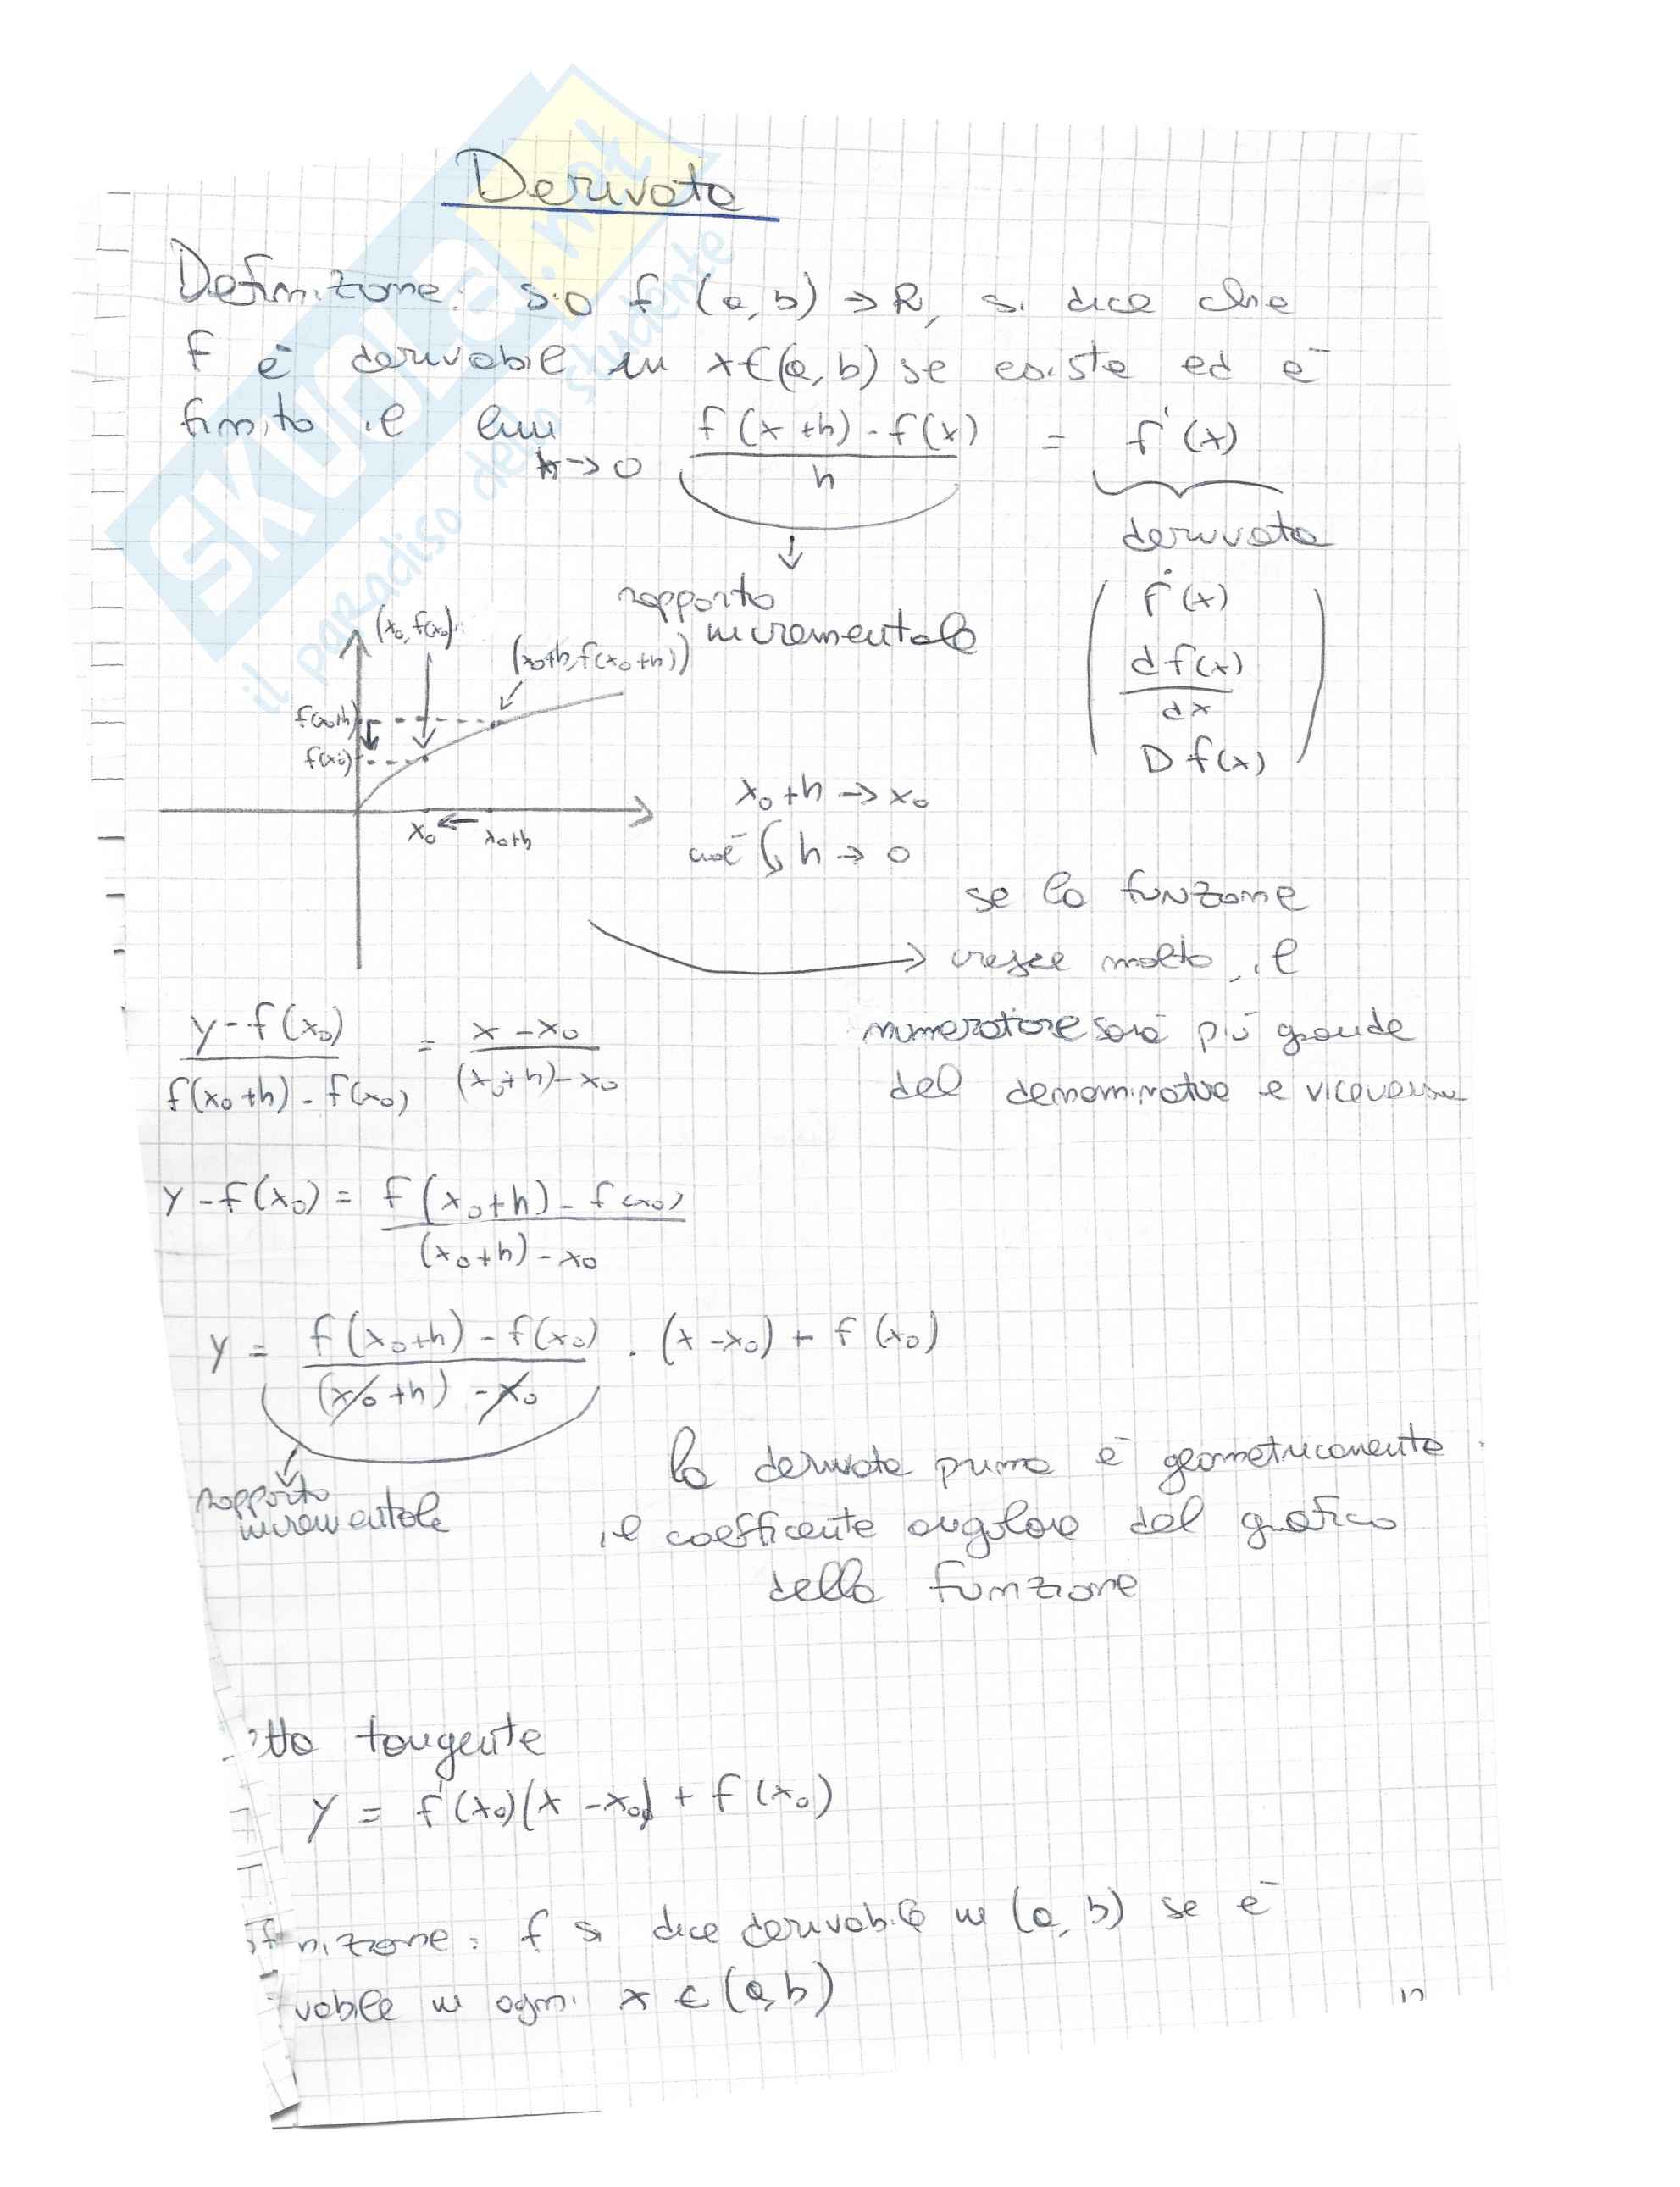 Derivata
Definizione: sia f (a, b) → R, si dice che
f è derivabile in x ∈ (a, b) se esiste ed è
finito il lim h→0 (f(x+h) - f(x)) / h = f'(x)
derivata
rapporto
incrementale
ḟ(x)
df(x)
dx
D f(x)
(x₀, f(x₀))
(x₀+h, f(x₀+h))
f(x₀+h)
f(x₀)
x₀ ← x₀+h
x₀+h → x₀
cioè h → 0
se la funzione
cresce molto, il
numeratore sarà più grande
del denominatore e viceversa
(y - f(x₀)) / (f(x₀+h) - f(x₀)) = (x - x₀) / ((x₀+h) - x₀)
y - f(x₀) = (f(x₀+h) - f(x₀)) / ((x₀+h) - x₀)
y = (f(x₀+h) - f(x₀)) / ((x₀+h) - x₀) · (x - x₀) + f(x₀)
rapporto
incrementale
la derivata prima è geometricamente
il coefficente angolare del grafico
della funzione
tta tangente
y = f'(x₀)(x - x₀) + f(x₀)
finizione: f si dice derivabile in (a, b) se è
vabile in ogni x ∈ (a, b)
SKUOLA.net
il paradiso dello studente